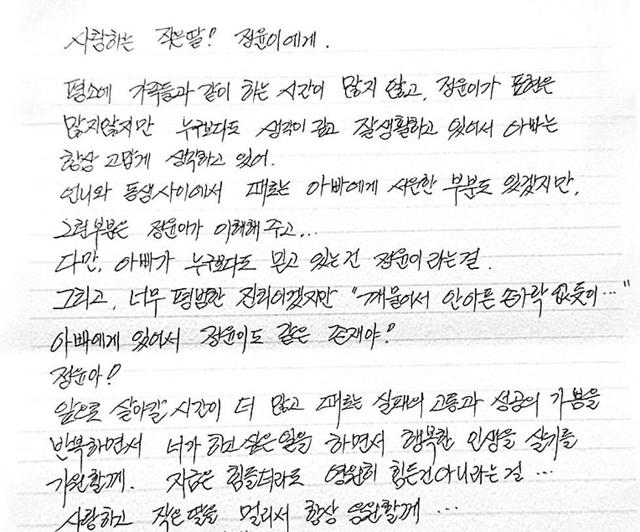 사랑하는 작은딸! 정윤이에게.
평소에 가족들과 같이 하는 시간이 많지 않고, 정윤이가 표현은
많지않지만 누구보다도 생각이 깊고 잘생활하고 있어서 아빠는
항상 고맙게 생각하고 있어.
언니와 동생사이에서 때로는 아빠에게 서운한 부분도 있겠지만,
그런부분은 정윤이가 이해해 주고...
다만, 아빠가 누구보다도 믿고 있는건 정윤이 라는걸.
그리고, 너무 평범한 진리이겠지만 "깨물어서 안아픈 손가락 없듯이..."
아빠에게 있어서 정윤이도 같은 존재야!
정윤아!
앞으로 살아갈 시간이 더 많고 때로는 실패의 고통과 성공의 기쁨을
반복하면서 너가 하고 싶은 일을 하면서 행복한 인생을 살기를
기원할께. 지금은 힘들더라도 영원히 힘든건아니라는 걸...
사랑하고 작은 딸을 멀리서 항상 응원할께...